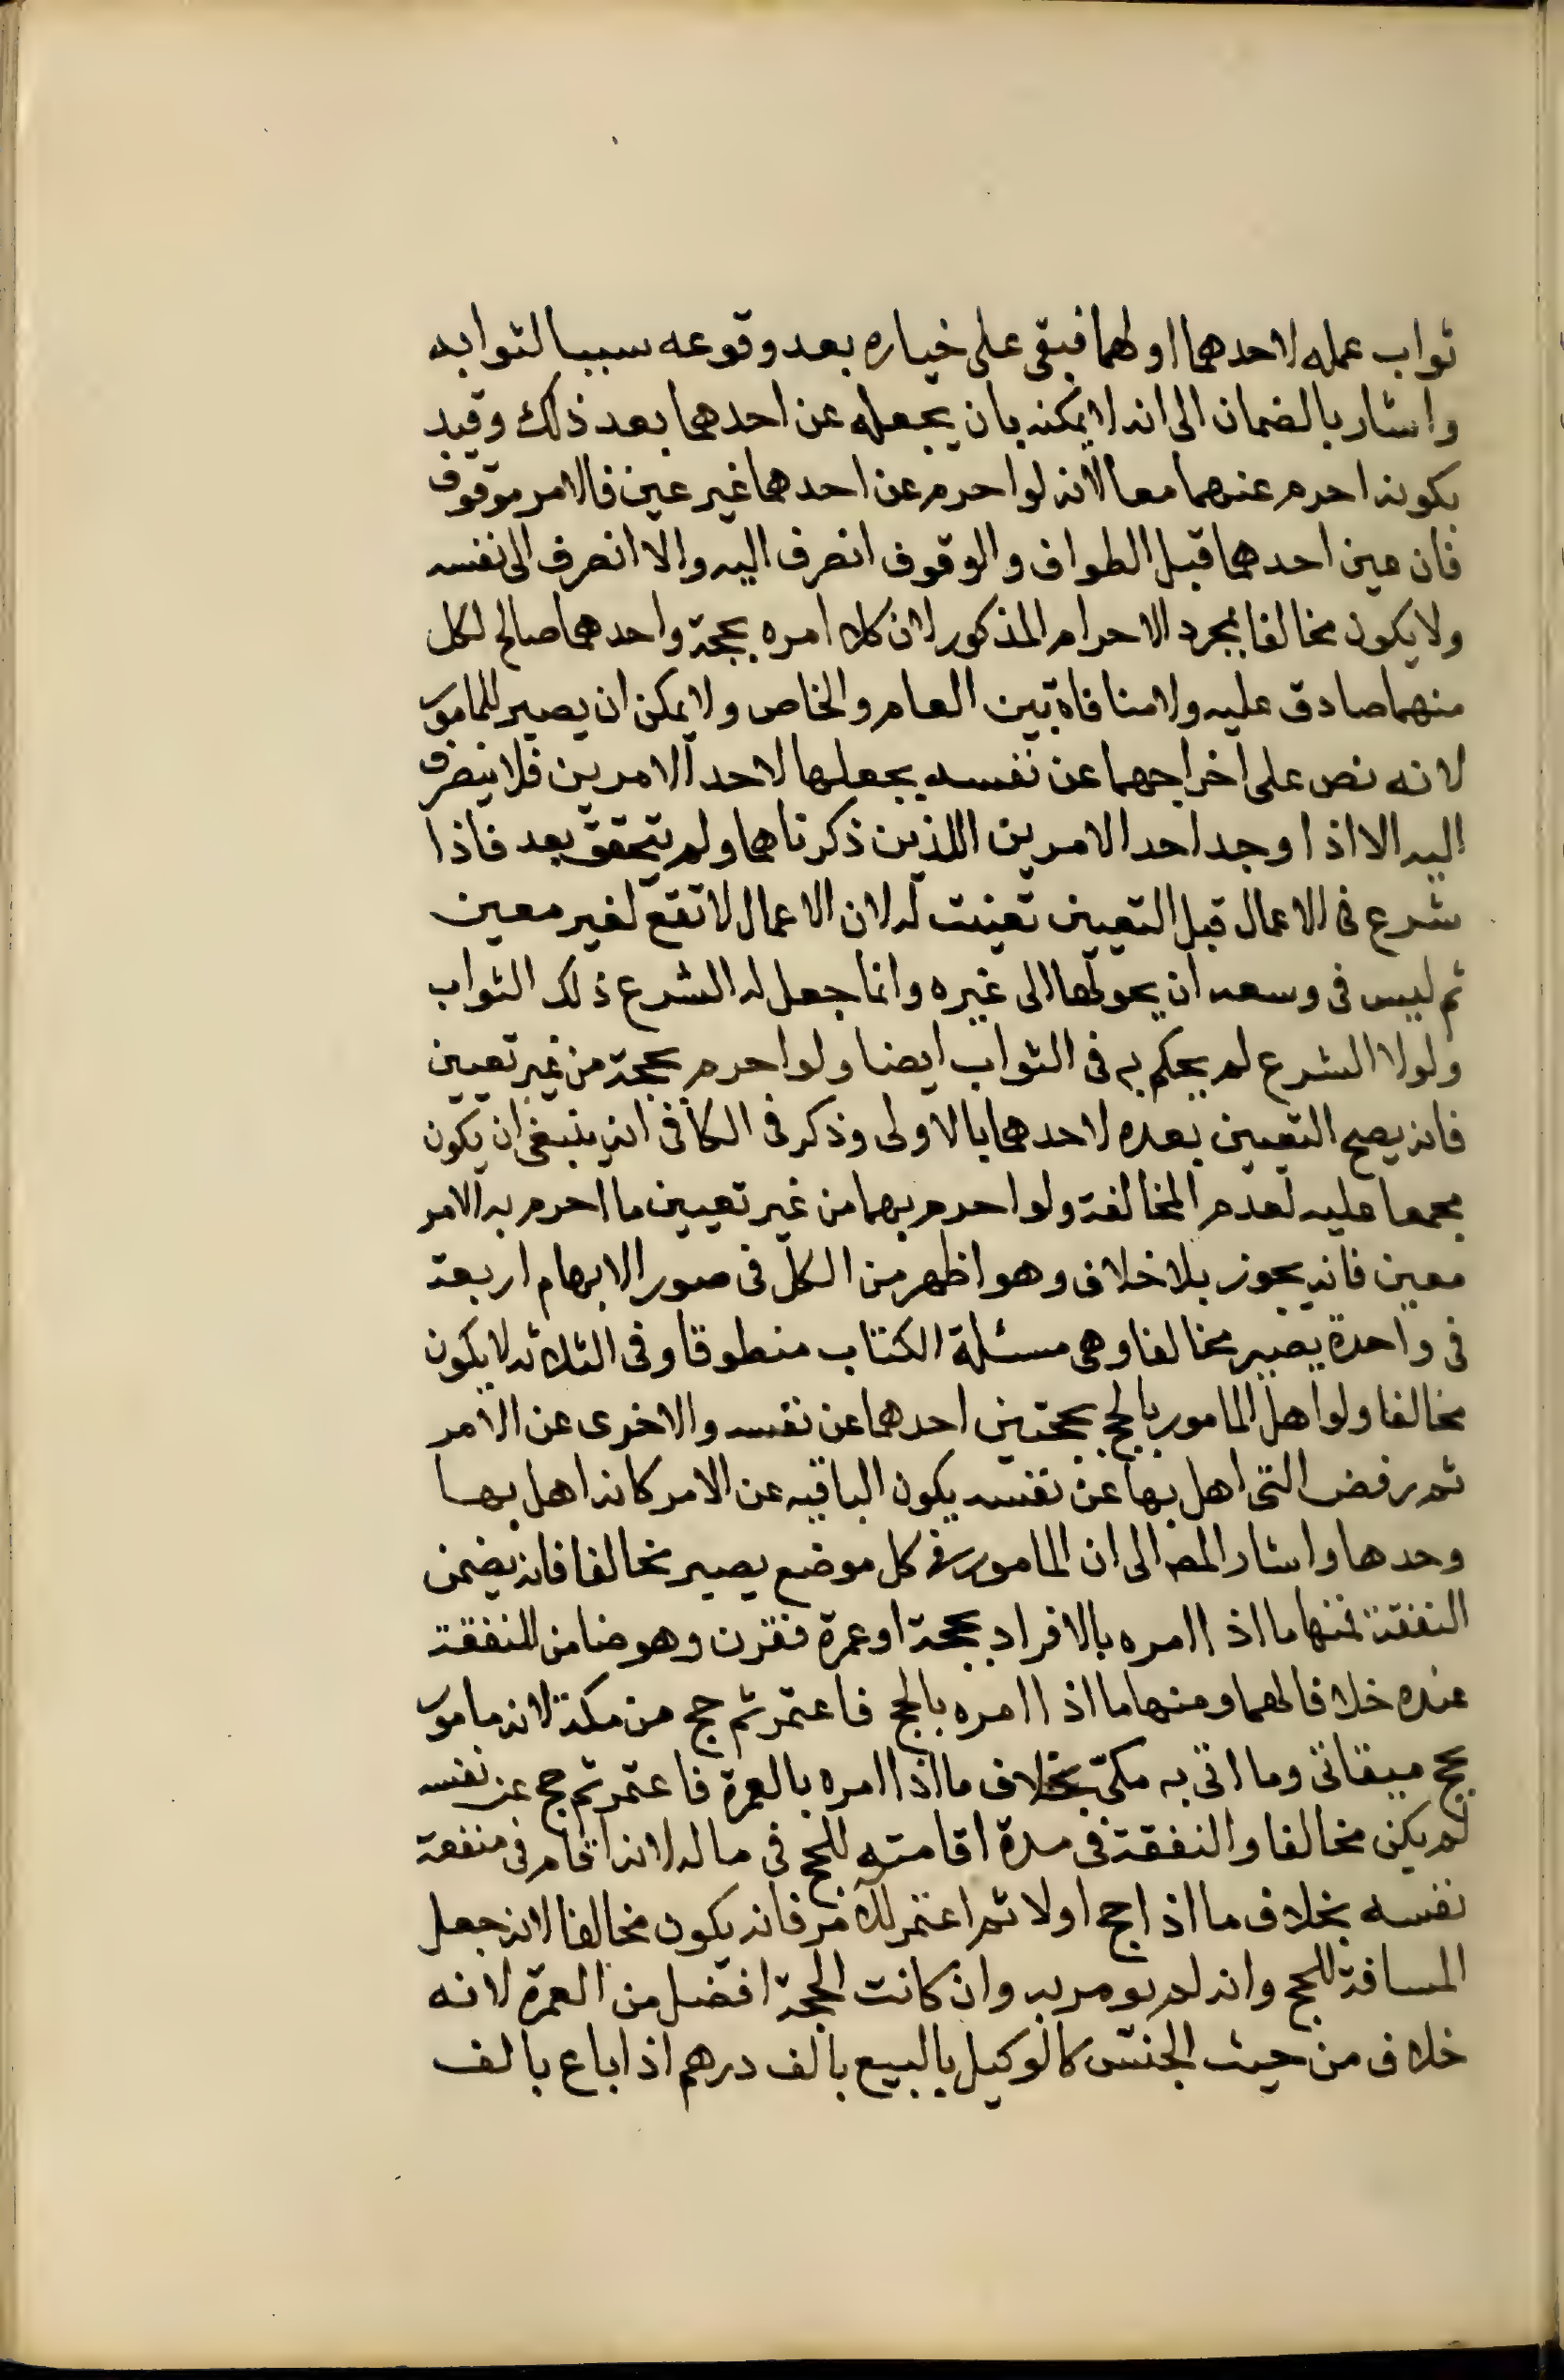 ثواب عمله لاحدهما او لهما فبقى على خياره بعد وقوعه سببا لثوابه
واشار بالضمان الى انه لا يمكنه بان يجعله عن احدهما بعد ذلك وقيد
بكونه احرم عنهما معا لانه لو احرم عن احدهما غير عين فالامر موقوف
فان عين احدهما قبل الطواف والوقوف انصرف اليه والا انصرف الى نفسه
ولا يكون مخالفا بمجرد الاحرام المذكور لان كلا امره بحجة واحدهما صالح لكل
منهما صادق عليه ولا منافاة بين العام والخاص ولا يمكن ان يصير للمامور
لانه نص على اخراجهما عن نفسه بجعلها لاحد الامرين فلا ينصرف
اليه الا اذا وجد احد الامرين اللذين ذكرناهما ولم يتحقق بعد فاذا
شرع فى الاعمال قبل التعيين تعينت له لان الاعمال لا تقع لغير معين
ثم ليس فى وسعه ان يحولها الى غيره وانما جعل له الشرع ذلك الثواب
ولولا الشرع لم يحكم به فى الثواب ايضا ولو احرم بحجة من غير تعيين
فانه يصح التعيين بعده لاحدهما بالاولى وذكر فى الكافى انه ينبغى ان يكون
مجمعا عليه لعدم المخالفة ولو احرم بهما من غير تعيين ما احرم به لامر
معين فانه يجوز بلا خلاف وهو اظهر من الكل فى صور الابهام اربعة
فى واحدة يصير مخالفا وهى مسئلة الكتاب منطوقا وفى الثلاثه لا يكون
مخالفا ولو اهل المامور بالحج بحجتين احدهما عن نفسه والاخرى عن الآمر
ثم رفض التى اهل بها عن نفسه يكون الباقيه عن الامر كانه اهل بها
وحدها واشار المص الى ان المامور فى كل موضع يصير مخالفا فانه يضمن
النفقة فمنها ما اذا امره بالافراد بحجة او عمرة فقرن وهو ضامن للنفقة
عنده خلافا لهما ومنها ما اذا امره بالحج فاعتمر ثم حج من مكة لانه مامور
بحج ميقاتى وما اتى به مكىّ بخلاف ما اذا امره بالعمرة فاعتمر ثم حج عن نفسه
لم يكن مخالفا والنفقة فى مدة اقامته للحج فى ماله لانه اقام فى منفعة
نفسه بخلاف ما اذا حج اولا ثم اعتمر للآمر فانه يكون مخالفا لانه جعل
المسافة للحج وانه لم يومر به وان كانت الحجة افضل من العمرة لانه
خلاف من حيث الجنس كالوكيل بالبيع بالف درهم اذا باع بالف